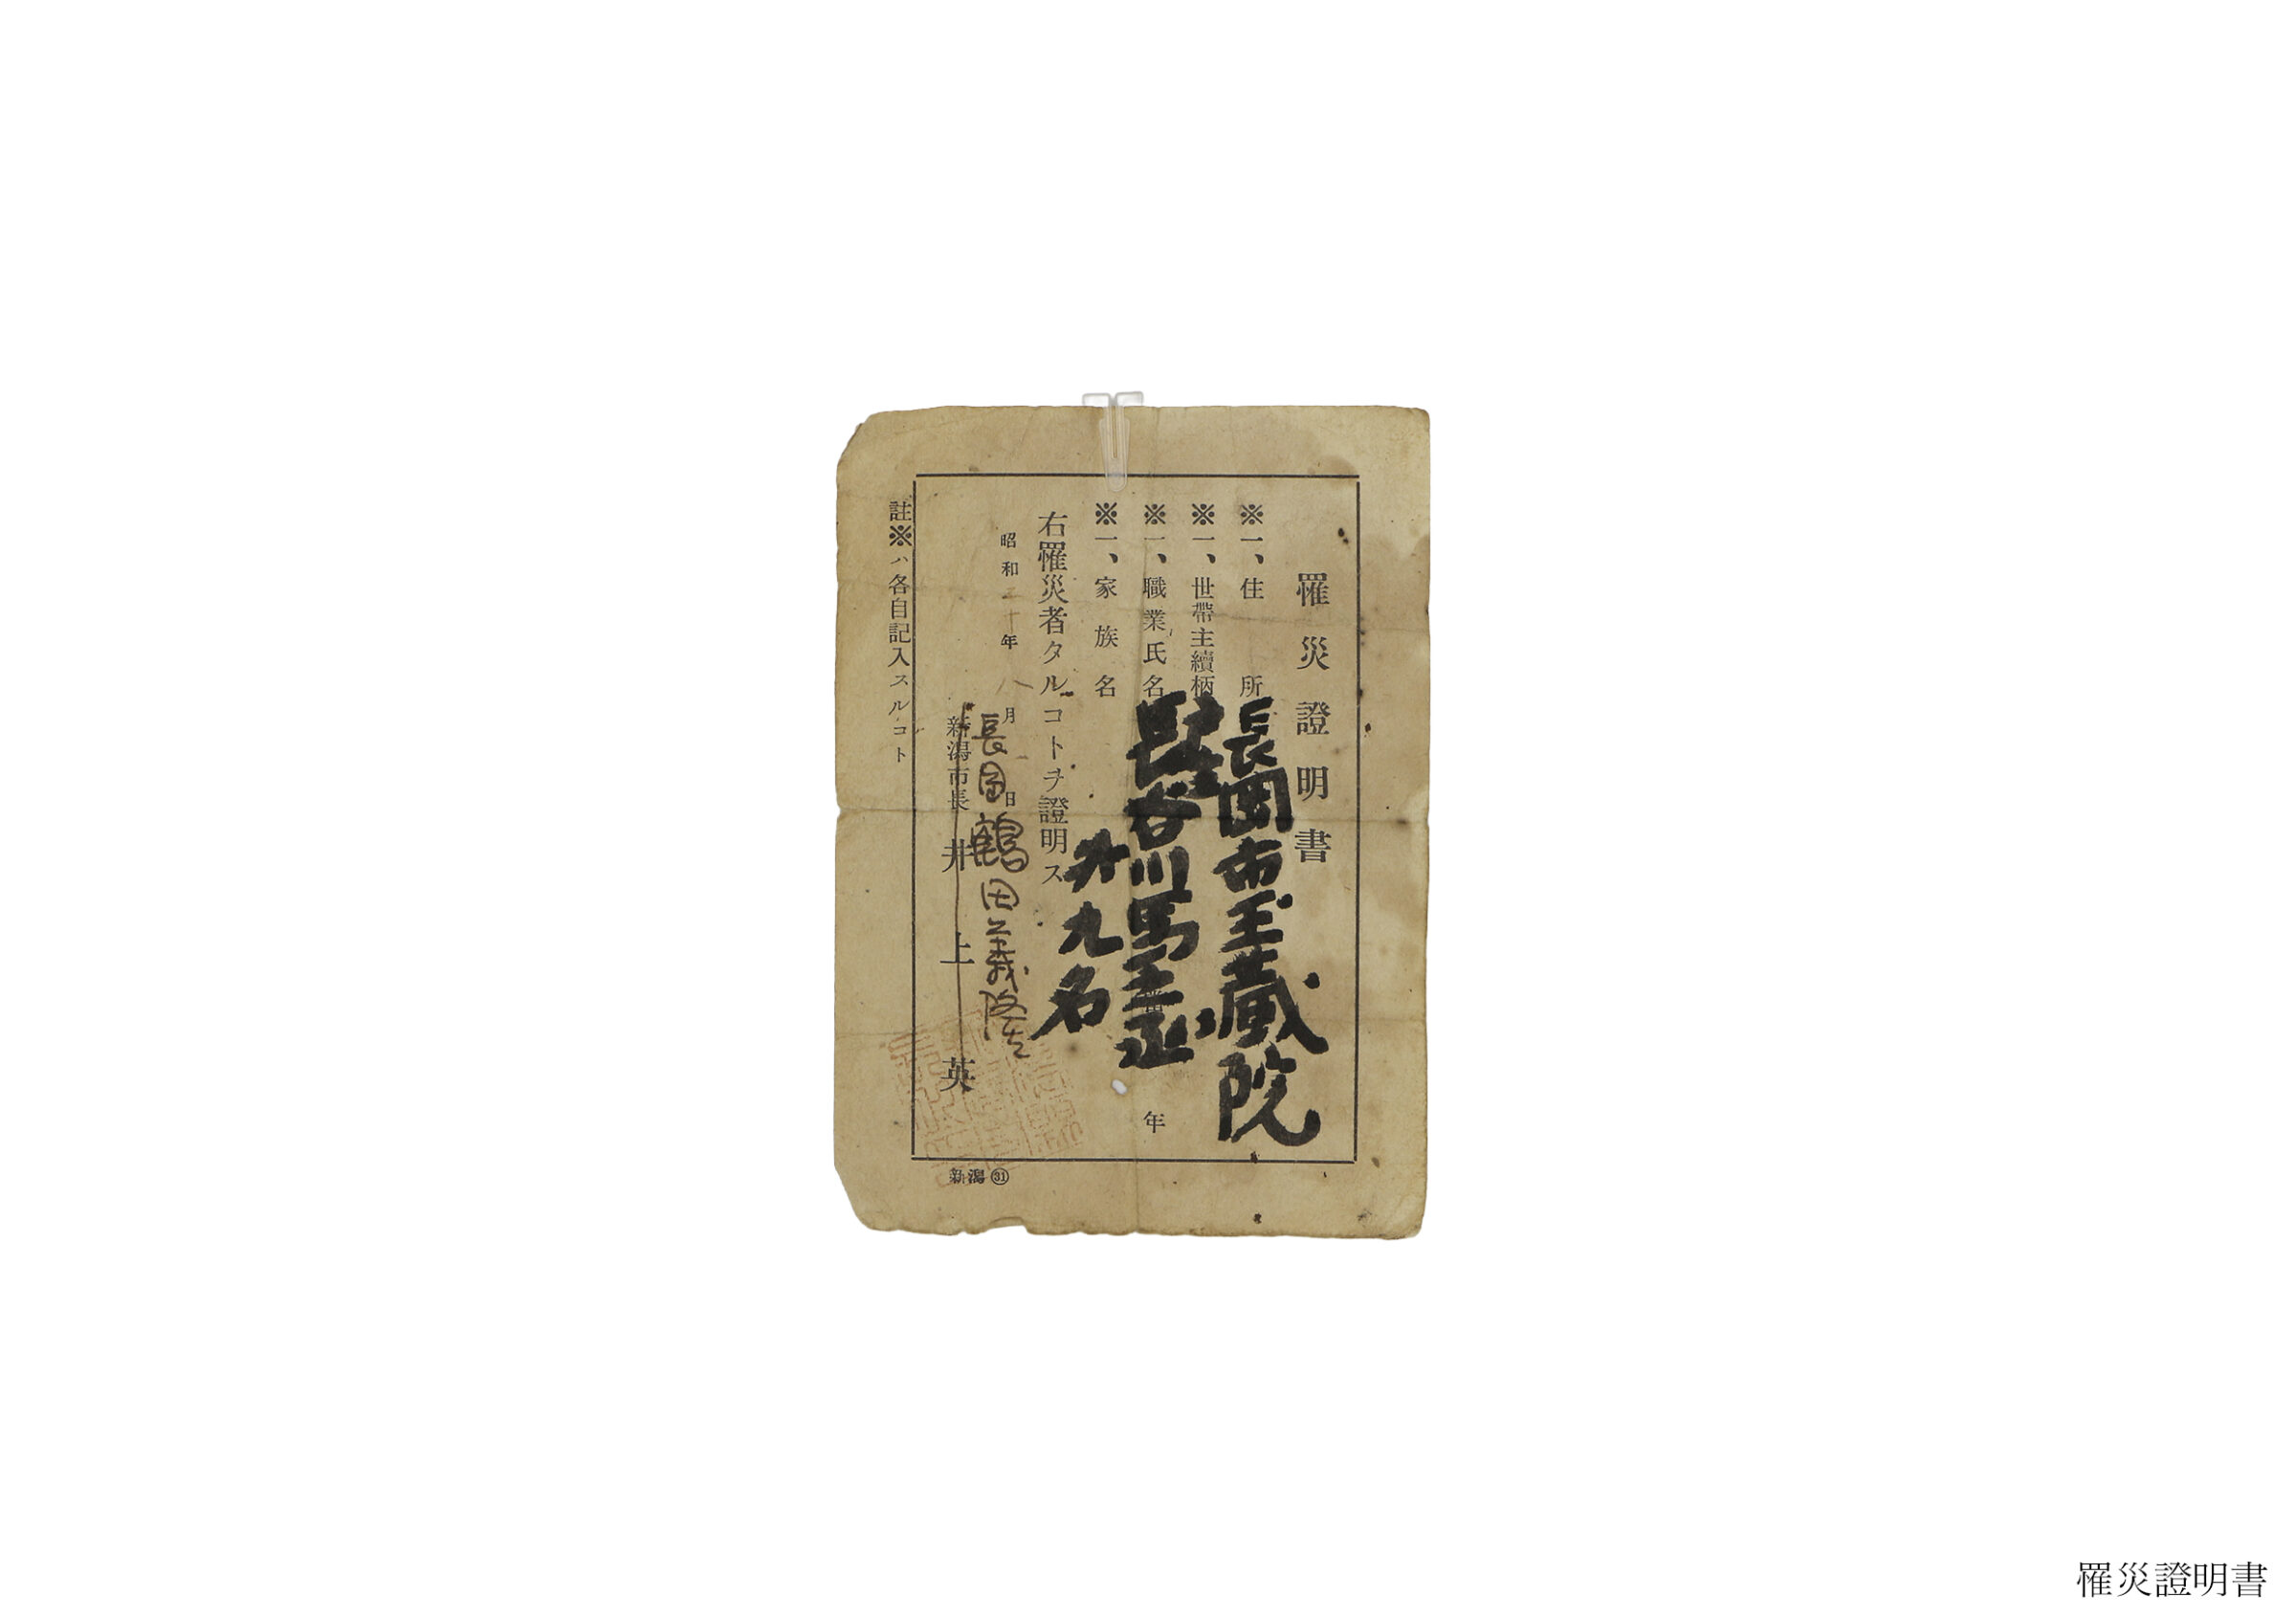 罹災證明書
※一、住所 長岡市玉蔵院
※一、世帶主續柄
※一、職業氏名 長谷川馬 年
※一、家族名 外九名
右罹災者タルコトヲ證明ス
昭和二十年八月 日
長岡 鶴田義隆
新潟市長 井上英
註※ハ各自記入スルコト
新潟㉛
罹災證明書